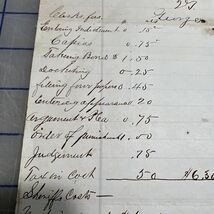 Clerks fees
George
Entering Indictment 0.15
Capias 0.75
Taking Bond 1.50
Docketing 0.25
filing four papers 0.40
Entering appearance 0.20
argument & Plea 0.75
order of punishment 0.50
Judgement .75
Tax in cost 50 $6.30
Sheriffs Costs —